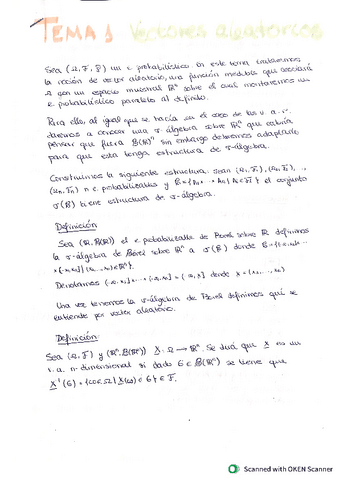 TEMA 1 Vectores aleatorios
Sea (Ω, F, P) un e. probabilístico. En este tema trataremos
la noción de vector aleatorio, una función medible que asociará
Ω con un espacio muestral ℝⁿ sobre el cual montaremos un
e. probabilístico paralelo al definido.
Para ello, al igual que se hacía en el caso de las v.a.
a conocer una σ-álgebra sobre ℝⁿ que cabría
pensar que fuera B(ℝ)ⁿ sin embargo debemos adaptarlo
para que esta tenga estructura de σ-álgebra.
Construimos la siguiente estructura. Sean (Ω₁, F₁), (Ω₂, F₂), ...,
(Ωn, Fn) n e. probabilizables y B = {A₁x ... xAn | Ai ∈ Fi} el conjunto
σ(B) tiene estructura de σ-álgebra.
Definición
Sea (ℝ, B(ℝ)) el e. probabilizable de Borel sobre ℝ definimos
la σ-álgebra de Borel sobre ℝⁿ a σ(B) donde
Denotamos (-∞, x₁]x...x(-∞, xn] = (-∞, x] donde x = (x₁, ..., xn)
Una vez tenemos la σ-álgebra de Borel definimos qué se
entiende por vector aleatorio.
Definición
Sea (Ω, F) y (ℝⁿ, B(ℝⁿ)) X: Ω → ℝⁿ. Se dirá que X es un
v.a. n-dimensional si dado G ∈ B(ℝⁿ) se tiene que
X⁻¹(G) = {ω ∈ Ω | X(ω) ∈ G} ∈ F.
Scanned with OKEN Scanner